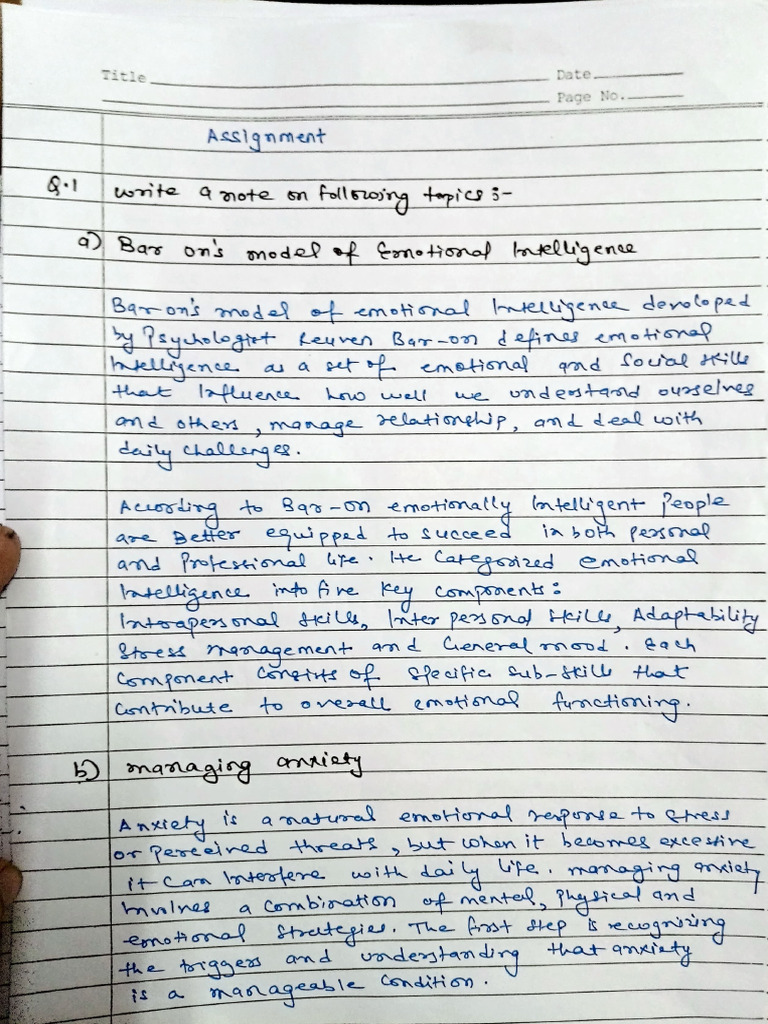 Title
Date
Page No.
Assignment
Q.1 write a note on following topics :-
a) Bar on's model of Emotional Intelligence
Bar on's model of emotional Intelligence devoloped
by Psychologist Reuven Bar-on defines emotional
Intelligence as a set of emotional and Social skills
that Influence how well we understand ourselves
and others, manage relationship, and deal with
daily challenges.
According to Bar-on emotionally Intelligent People
are Better equipped to succeed in both personal
and Professional life. He Categorized emotional
Intelligence into five key components:
Intrapersonal skills, Inter personal skills, Adaptability
Stress management and General mood. Each
Component consists of specific sub-skill that
Contribute to overall emotional functioning.
b) managing anxiety
Anxiety is a natural emotional response to stress
or perceived threats, but when it becomes excessive
it can Interfere with daily life. managing anxiety
Involves a combination of mental, physical and
emotional Strategies. The first step is recognizing
the triggers and understanding that anxiety
is a manageable condition.